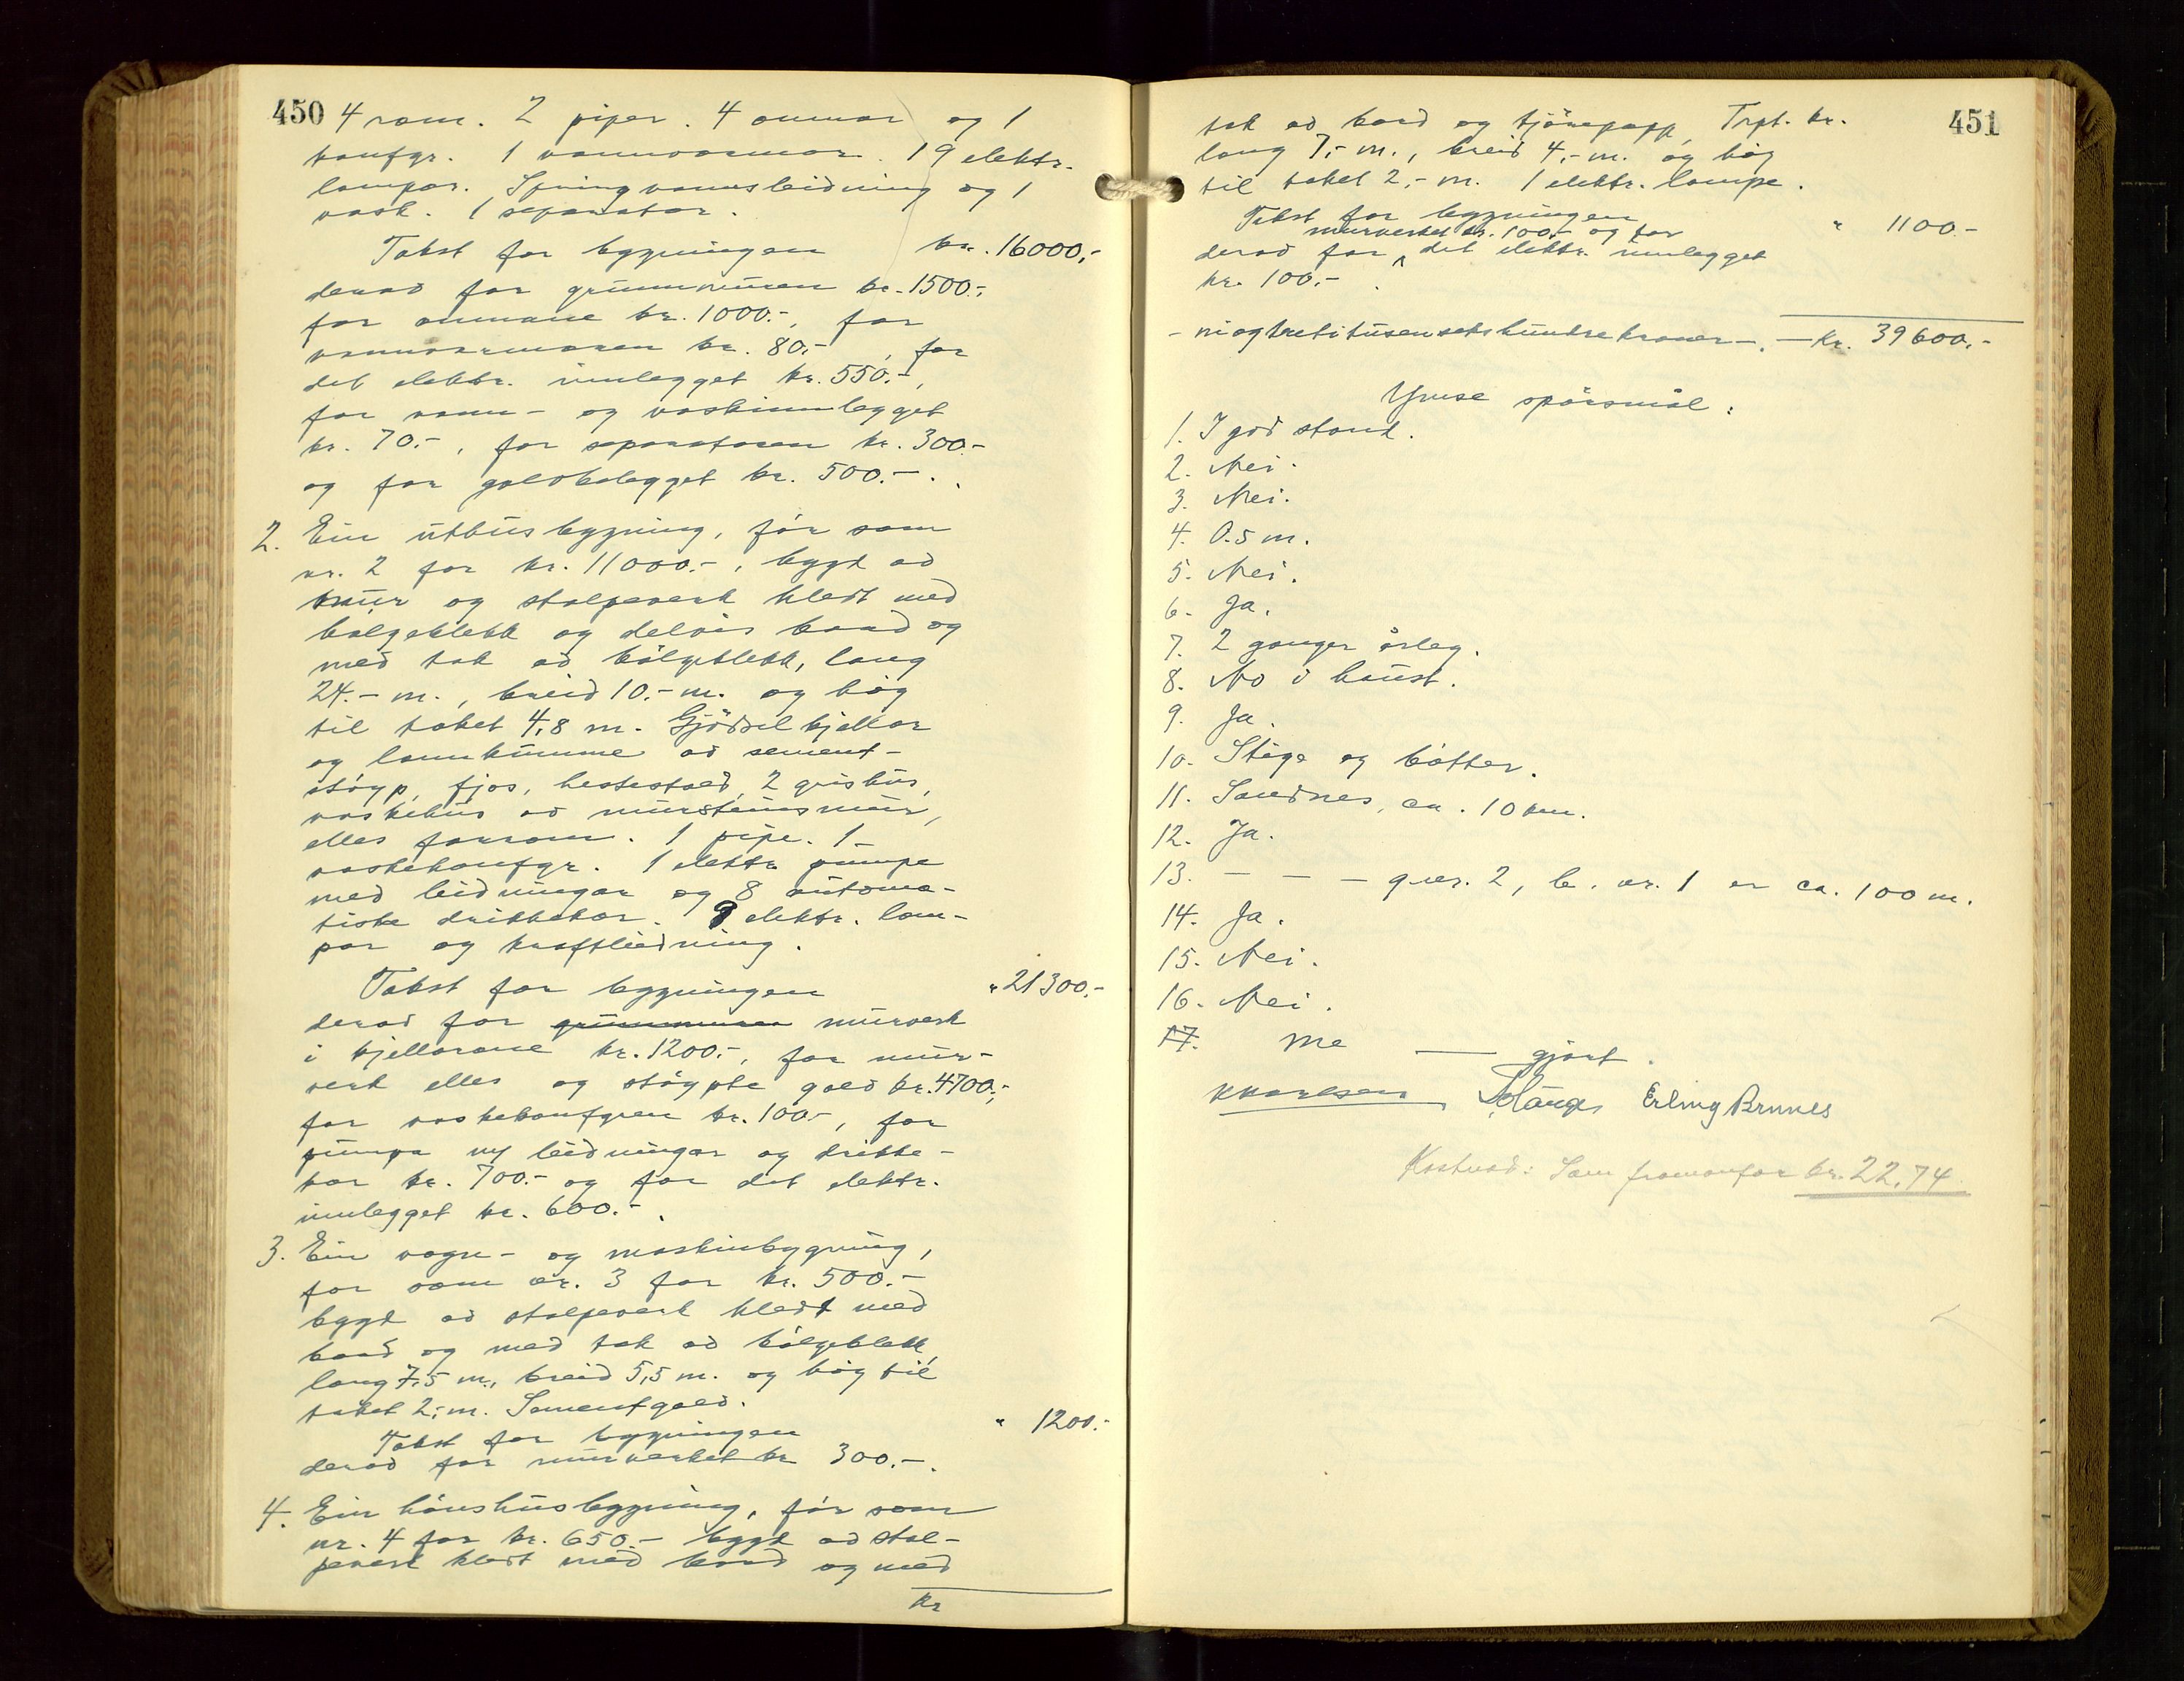 450
4 rom. 2 piper. 4 omnar og 1
komfyr. 1 vannvarmar. 19 elektr.
lampar. Springvannsleidning og 1
vask. 1 separator.
Takst for bygningen kr. 16000,-
derav for grunnmuren kr. 1500.-,
for omnane kr. 1000.-, for
vannvarmaren kr. 80.-, for
det elektr. innlegget kr. 550.-,
for vann- og vaskinnlegget
kr. 70.-, for separatoren kr. 300.-
og for golvbelegget kr. 500.-.
2. Ein uthusbygning, för som
nr. 2 for kr. 11000.-, bygt av
mur og stolpeverk kledt med
bølgeblekk og delvis bord og
med tak av bölgeblekk, lang
24.- m., breid 10.- m. og höy
til taket 4,8 m. Gjödselkjellar
og lannkumme av sement-
stöyp, fjos, hestestall, 2 grishus,
vaskehus av murstensmur,
elles forrom. 1 pipe. 1
vaskekomfyr. 1 elektr. pumpe
med leidningar og 8 automa-
tiske drikkekar. 9 elektr. lam-
par og kraftleidning.
Takst for bygningen " 21300.-
derav for grunnmuren murverk
i kjellarane kr. 1200.-, for mur-
verk elles og stöypte golv kr. 4700.-,
for vaskekomfyren kr. 100.-, for
pumpa m/ leidningar og drikke-
kar kr. 700.- og for det elektr.
innlegget kr. 600.-.
3. Ein vogn- og maskinbygning,
för som nr. 3 for kr. 500.-
bygt av stolpeverk kledt med
bord og med tak av bölgeblekk,
lang 7,5 m., breid 5,5 m. og höy til
taket 2,- m. Sementgolv.
Takst for bygningen " 1200.-
derav for murverket kr 300.-.
4. Ein hönshusbygning, för som
nr. 4 for kr. 650.- bygt av stol-
peverk kledt med bord og med
Kr
451
tak av bord og tjörepapp, Trpt. kr.
lang 7,- m., breid 4,- m. og höy
til taket 2,- m. 1 elektr. lampe.
Takst for bygningen " 1100.-
murverket kr. 100.- og for
derav for det elektr. innlegget
kr. 100.-.
- niogtrettitusensekshundrekroner -. - Kr. 39600.-
Ymse spörsmål:
1. I god stand.
2. Nei.
3. Nei.
4. 0.5 m.
5. Nei.
6. Ja.
7. 2 ganger årleg.
8. No i haust.
9. Ja.
10. Stige og bötter.
11. Sandnes, ca. 10 km.
12. Ja.
13. - - - g.nr. 2, b. nr. 1 er ca. 100 m.
14. Ja.
15. Nei.
16. Nei.
17. Me — gjort.
K Karlsen Erling Brunes
Kostnad: Som framanfor kr. 22,74